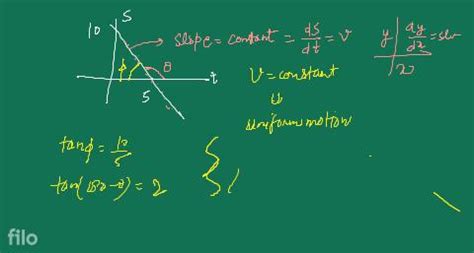 S
10
slope = constant = ds/dt = v
y | dy/dx = slo
x
φ θ
t
5
v = constant
⇓
uniform motion
tanφ = 10/5
tan(180-θ) = 2
filo